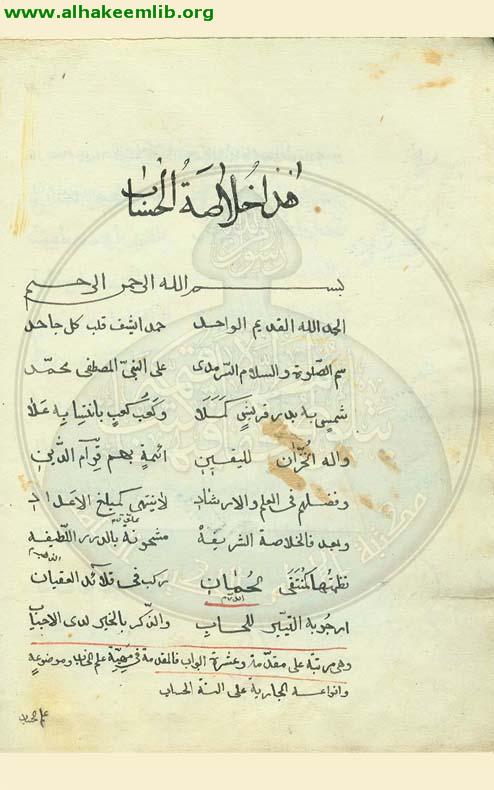 www.alhakeemlib.org
هذا خلاصة الحساب
بسم الله الرحمن الرحيم
الحمد لله القديم الواحد حمدا يشف قلب كل جاحد
ثم الصلوة والسلام السرمدى على النبىّ المصطفى محمّد
شمس به بدر قريش كملا وكعب كعب بانتسابه علا
واله الخزان لليقين ائمة بهم قوام الدين
وفضلهم فى العلم والارشاد لا ينتهى كمبلغ الاعداد
وبعد فالخلاصة الشريفه مشحونة بالدرر اللطيفه
نظمتها كمنتقى جمان ركب فى قلائد العقيان
ارجوبة التيسير للحساب والذكر بالخير لدى الاحباب
وهى مرتبة على مقدمة وعشرة ابواب فالمقدمة فى مهية علم الحساب وموضوعه
وانواعه الجارية على السنة الحساب
علم الحساب